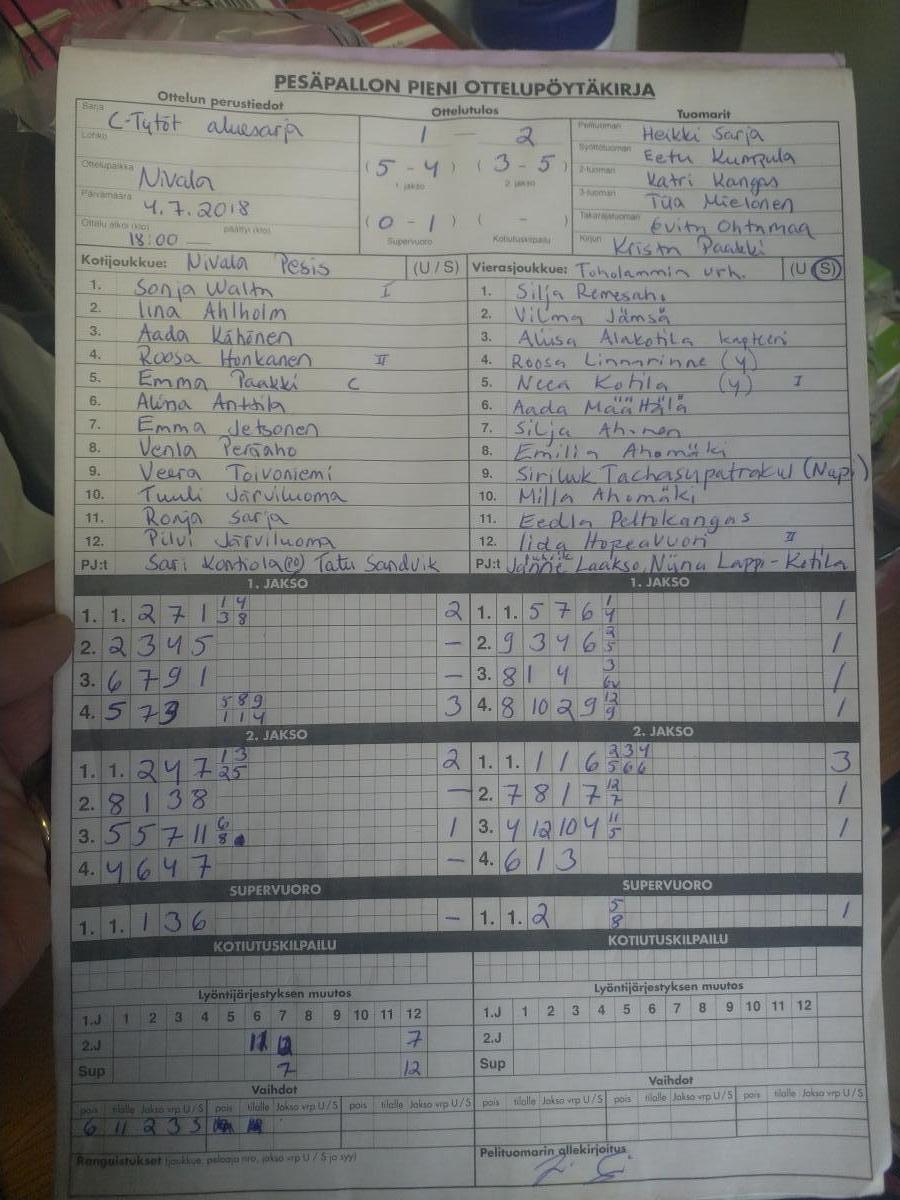 PESÄPALLON PIENI OTTELUPÖYTÄKIRJA
Ottelun perustiedot Ottelutulos Tuomarit
Sarja C-Tytöt aluesarja 1 — 2 Pelituomari Heikki Sarja
Lohko (5 - 4) (3 - 5) Syöttötuomari Eetu Kumpula
1. jakso 2. jakso 2-tuomari Katri Kangas
Ottelupaikka Nivala 3-tuomari Tiia Mielonen
Päivämäärä 4.7.2018 (0 - 1) ( - ) Takarajatuomari
Ottelu alkoi (klo) 18:00 päättyi (klo) Supervuoro Kotiutuskilpailu Kirjuri Krista Paakki
Kotijoukkue: Nivala Pesis (U / S) Vierasjoukkue: Toholammin urh. (U / S)
1. Sonja I 1. Silja
2. Iina Ahlholm 2. Vilma Jämsä
3. Aada Kähönen 3. Alakotila kapteeni
4. Roosa Honkanen II 4. Roosa Linnarinne (y)
5. Emma Paakki C 5. Neea Kotila (y) I
6. Alina Anttila 6. Aada Määttälä
7. Emma 7. Silja Ahonen
8. Venla Peräaho 8. Emilia Ahomäki
9. Veera Toivoniemi 9. Siriluk Tachasupatrakul (Napi)
10. Tuuli Järviluoma 10. Milla Ahomäki
11. Ronja Sarja 11. Eedla Peltokangas
12. Pilvi Järviluoma 12. Iida Hopeavuori II
PJ:t Sari Kontiola Tatu Sandvik PJ:t Laakso, Niina Lappi-Kotila
1. JAKSO 1. JAKSO
1. 1. 2 7 1 1 4 2 1. 1. 5 7 6 1 1
3 8 4
2. 2 3 4 5 — 2. 9 3 4 6 2 1
5
3. 6 7 9 1 — 3. 8 1 4 3 1
4. 5 7 3 5 8 9 3 4. 8 10 2 9 12 1
1 1 4 9
2. JAKSO 2. JAKSO
1. 1. 2 4 7 1 3 2 1. 1. 1 1 6 2 3 4 3
2 5 5 6 6
2. 8 1 3 8 — 2. 7 8 1 7 12 1
7
3. 5 5 7 11 6 1 3. 4 12 10 4 11 1
8 5
4. 4 6 4 7 — 4. 6 1 3
SUPERVUORO SUPERVUORO
1. 1. 1 3 6 — 1. 1. 2 5 1
8
KOTIUTUSKILPAILU KOTIUTUSKILPAILU
Lyöntijärjestyksen muutos Lyöntijärjestyksen muutos
1.J 1 2 3 4 5 6 7 8 9 10 11 12 1.J 1 2 3 4 5 6 7 8 9 10 11 12
2.J 11 7 2.J
Sup 7 12 Sup
Vaihdot Vaihdot
pois tilalle Jakso vrp U / S pois tilalle Jakso vrp U / S pois tilalle Jakso vrp U / S pois tilalle Jakso vrp U / S pois tilalle Jakso vrp U / S pois tilalle Jakso vrp U / S
6 11 2 3 S
Rangaistukset (joukkue, pelaaja nro, jakso vrp U / S ja syy) Pelituomarin allekirjoitus